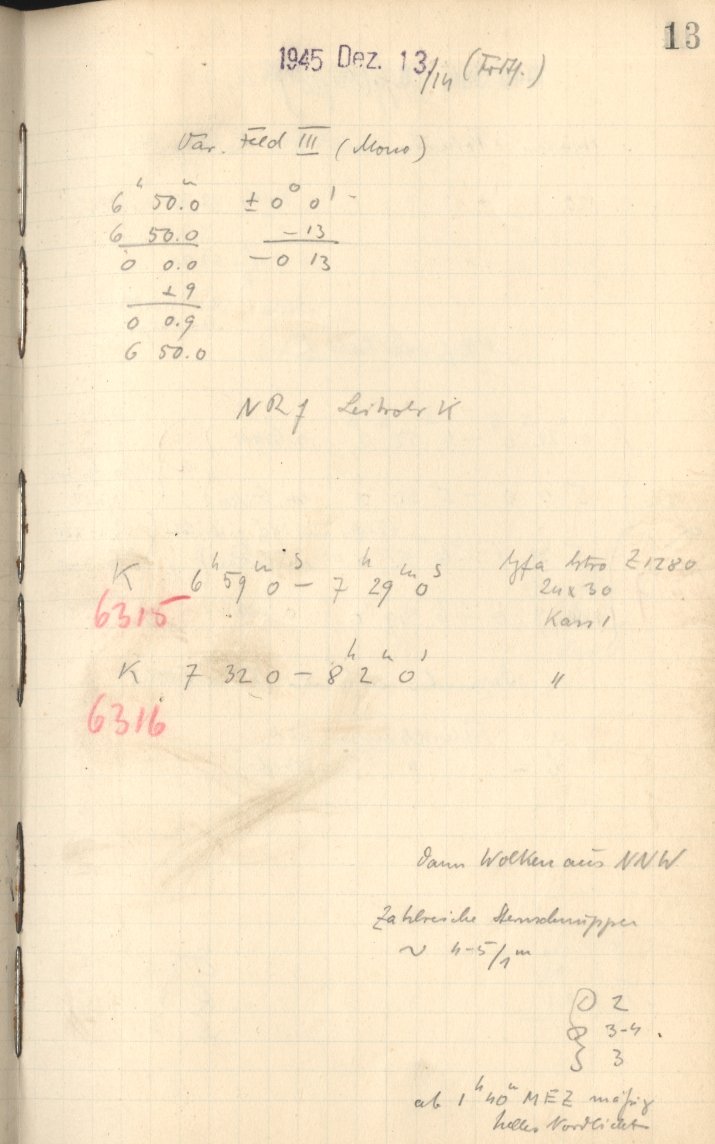 13
1945 Dez. 13./14 (Forts.)
Var. Feld III (Mono)
6ʰ 50.ᵐ0 ± 0° 0'
6 50.0 – 13
0 0.0 – 0 13
+9
0 0.9
6 50.0
Leitrohr K
K 6ʰ 59ᵐ 0ˢ – 7ʰ 29ᵐ 0ˢ Agfa Astro Z1280
6315 24x30
Kass 1
K 7 32 0 – 8ʰ 2ᵐ 0ˢ "
6316
Dann Wolken aus NNW
Zahlreiche Sternschnuppen
~ 4-5/1ᵐ
2
3-4
3
ab 1ʰ 40ᵐ MEZ mäßig
helles Nordlicht